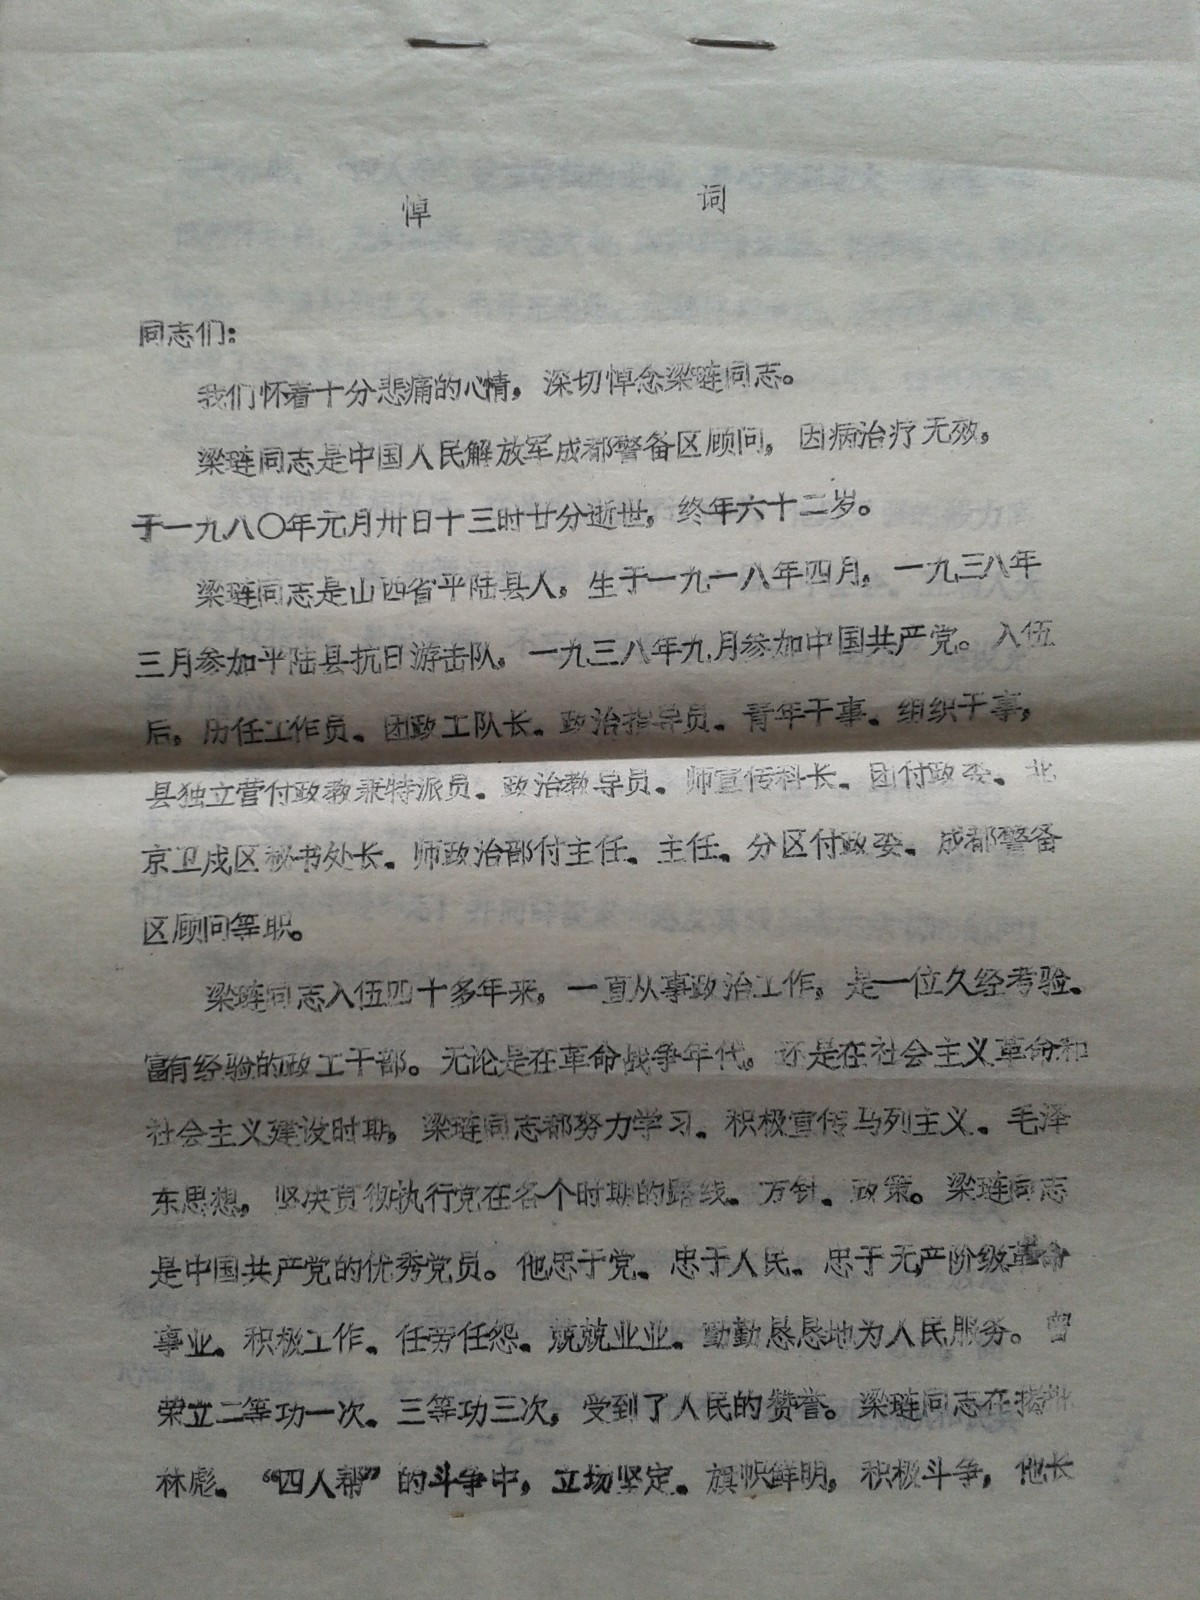 悼 词
同志们：
我们怀着十分悲痛的心情，深切悼念梁琏同志。
梁琏同志是中国人民解放军成都警备区顾问，因病治疗无效，
于一九八〇年元月卅日十三时廿分逝世，终年六十二岁。
梁琏同志是山西省平陆县人，生于一九一八年四月，一九三八年
三月参加平陆县抗日游击队，一九三八年九月参加中国共产党。入伍
后，历任工作员、团政工队长、政治指导员、青年干事、组织干事，
县独立营付政教兼特派员、政治教导员、师宣传科长、团付政委、北
京卫戍区秘书处长、师政治部付主任、主任、分区付政委、成都警备
区顾问等职。
梁琏同志入伍四十多年来，一直从事政治工作，是一位久经考验、
富有经验的政工干部。无论是在革命战争年代，还是在社会主义革命和
社会主义建设时期，梁琏同志都努力学习、积极宣传马列主义、毛泽
东思想，坚决贯彻执行党在各个时期的路线、方针、政策。梁琏同志
是中国共产党的优秀党员。他忠于党、忠于人民、忠于无产阶级革命
事业、积极工作、任劳任怨、兢兢业业、勤勤恳恳地为人民服务。曾
荣立二等功一次、三等功三次，受到了人民的赞誉。梁琏同志在揭批
林彪、“四人帮”的斗争中，立场坚定、旗帜鲜明，积极斗争，他长